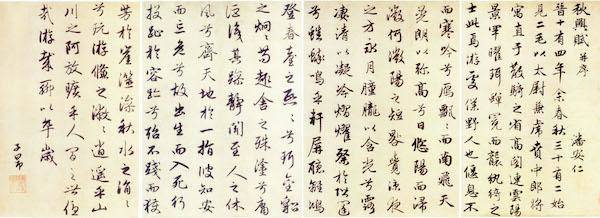 秋興賦 并序
潘安仁
晉十有四年余春秋三十有二始
見二毛以太尉掾兼虎賁中郎將
寓直于散騎之省高閣連雲陽
景罕曜珥蟬冕而襲紈綺之
士此焉游處僕野人也偃息不
而寒吟兮雁飄飄而南飛天
晃朗以彌高兮日悠陽而浸
微何微陽之短晷覺涼夜
之方永月朣朧以含光兮露
凄清以凝冷熠燿粲於階闥
兮蟋蟀鳴乎軒屏聽離鴻
登春臺之熙熙兮珥金貂
之炯炯苟趣舍之殊塗兮庸
詎識其躁靜聞至人之休
風兮齊天地於一指彼知安
而忘危兮故出生而入死行
投趾於容跡兮殆不踐而獲
芳於崖澨澡秋水之涓涓
兮玩游儵之潎潎逍遙乎山
川之阿放曠乎人間之世優
哉游哉聊以卒歲
子昂